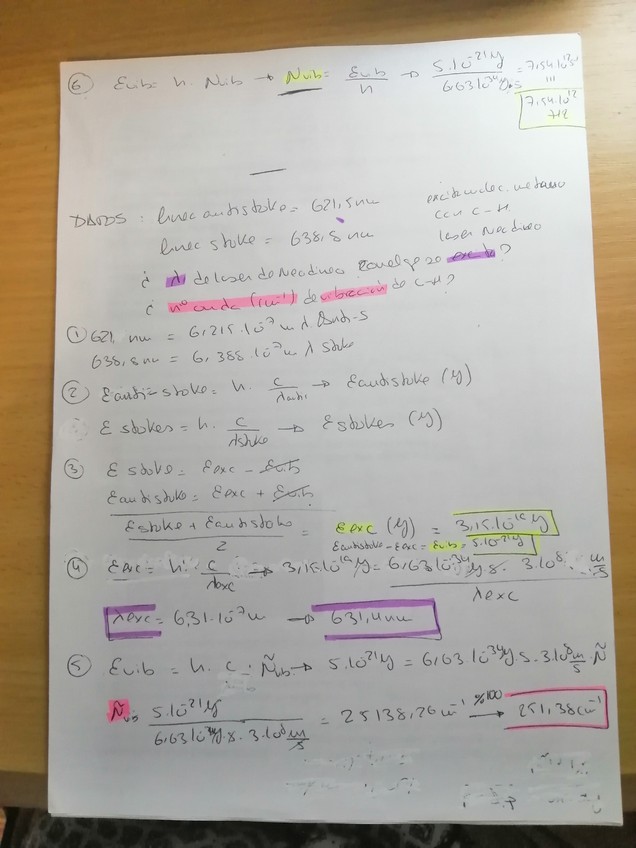 ⑥ Evib = h · Nvib → Nvib = Evib/h → 5.10⁻²¹ y / 6.63 10⁻³⁴ y.s = 7,54.10¹² s⁻¹
7,54.10¹² Hz
DATOS : linea antistoke = 621,5 nm
linea stoke = 638,8 nm con C-H
laser Neodimio
¿ λ de laser de Neodimio ?
¿ nº onda (cm⁻¹) de vibración de C-H ?
① 621, nm = 6,215.10⁻⁷ m λ anti-S
638,8 nm = 6,388.10⁻⁷ m λ stoke
② Eanti-stoke = h. c/λanti → Eantistoke (y)
E stokes = h. c/λstoke → Estokes (y)
③ E stoke = Eexc - Evib
Eantistoke = Eexc + Evib
Estoke + Eantistoke / 2 = Eexc (y) = 3,15.10⁻¹⁹ y
Eantistoke - Eexc = Evib = 5.10⁻²¹ y
④ Eexc = h. c/λexc → 3,15.10⁻¹⁹ y = 6,63 10⁻³⁴ y.s. 3.10⁸ m/s / λexc
λexc = 6,31.10⁻⁷ m → 631,4 nm
⑤ Evib = h. c. Ñvib → 5.10⁻²¹ y = 6,63 10⁻³⁴ y.s. 3.10⁸ m/s . Ñ
Ñvib 5.10⁻²¹ y / 6,63 10⁻³⁴ y.s. 3.10⁸ m/s = 25138,26 m⁻¹ %100 → 251,38 cm⁻¹